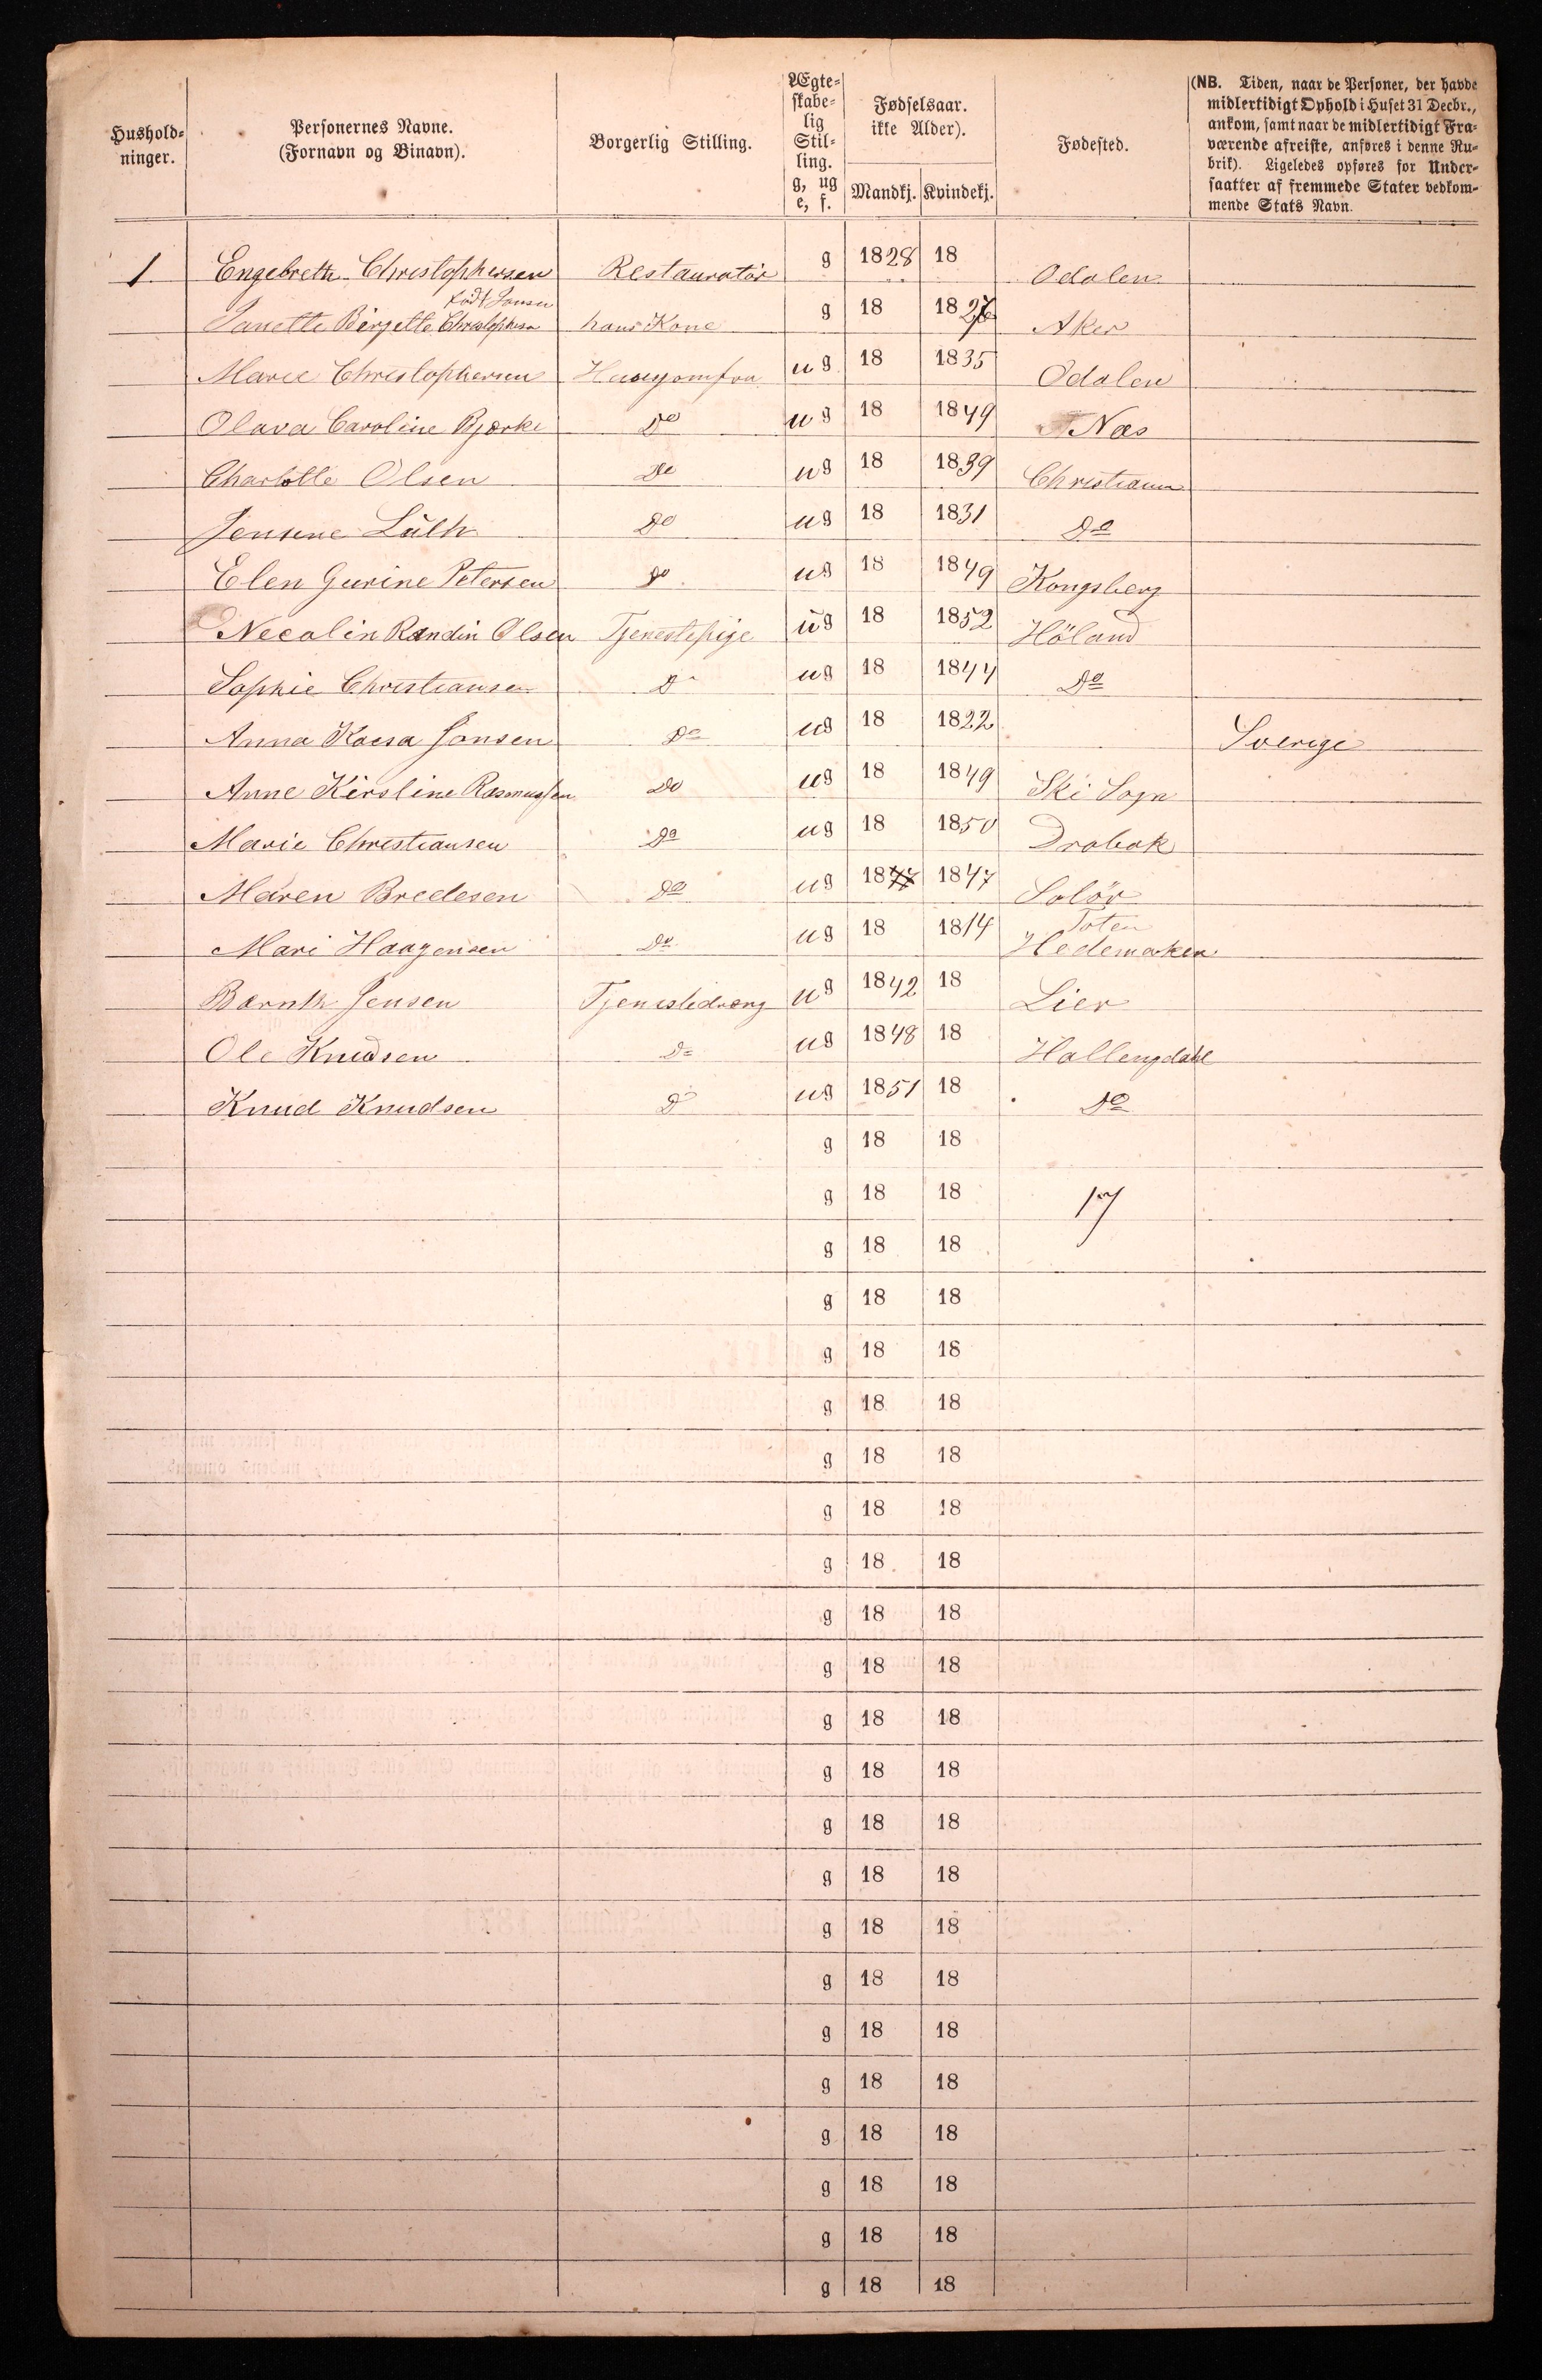 Hushold-
ninger.
Personernes Navne.
(Fornavn og Binavn).
Borgerlig Stilling.
Ægte-
skabe-
lig
Stil-
ling.
g, ug
e, f.
Fødselsaar.
ikke Alder).
Mandkj. Kvindekj.
Fødested.
(NB. Tiden, naar de Personer, der havde
midlertidigt Ophold i Huset 31 Decbr.,
ankom, samt naar de midlertidigt Fra-
værende afreiste, anføres i denne Ru-
brik). Ligeledes opføres for Under-
saatter af fremmede Stater vedkom-
mende Stats Navn.
1. Engebreth Christophersen Restauratör g 1828 18 Odalen
født Jansen
Janette Birgette Christophersen hans Kone g 18 Aker
Marie Christophersen Huusjomfru ug 18 1835 Odalen
Olava Caroline Bjerke Do ug 18 1849 Næs
Charlotte Olsen Do ug 18 1839 Christiania
Jensine Lüth Do ug 18 1831 Do
Elen Gurine Petersen Do ug 18 1849 Kongsberg
Necolin Randin Olsen Tjenestepige ug 18 1852 Höland
Sophie Christiansen Do ug 18 1844 Do
Anna Kaesa Jonsen Do ug 18 1822 Sverige
Anne Kirstine Rasmussen Do ug 18 1849 Ski Sogn
Marie Christiansen Do ug 18 1850 Drobak
Maren Bredesen Do ug 1847 1847 Solör
Toten
Mari Haagensen Do ug 18 1814 Hedemarken
Bernth Jensen Tjenestedreng ug 1842 18 Lier
Ole Knudsen Do ug 1848 18 Hallengdahl
Knud Knudsen Do ug 1851 18 Do
g 18 18
g 18 18 17
g 18 18
g 18 18
g 18 18
g 18 18
g 18 18
g 18 18
g 18 18
g 18 18
g 18 18
g 18 18
g 18 18
g 18 18
g 18 18
g 18 18
g 18 18
g 18 18
g 18 18
g 18 18
g 18 18
g 18 18
g 18 18